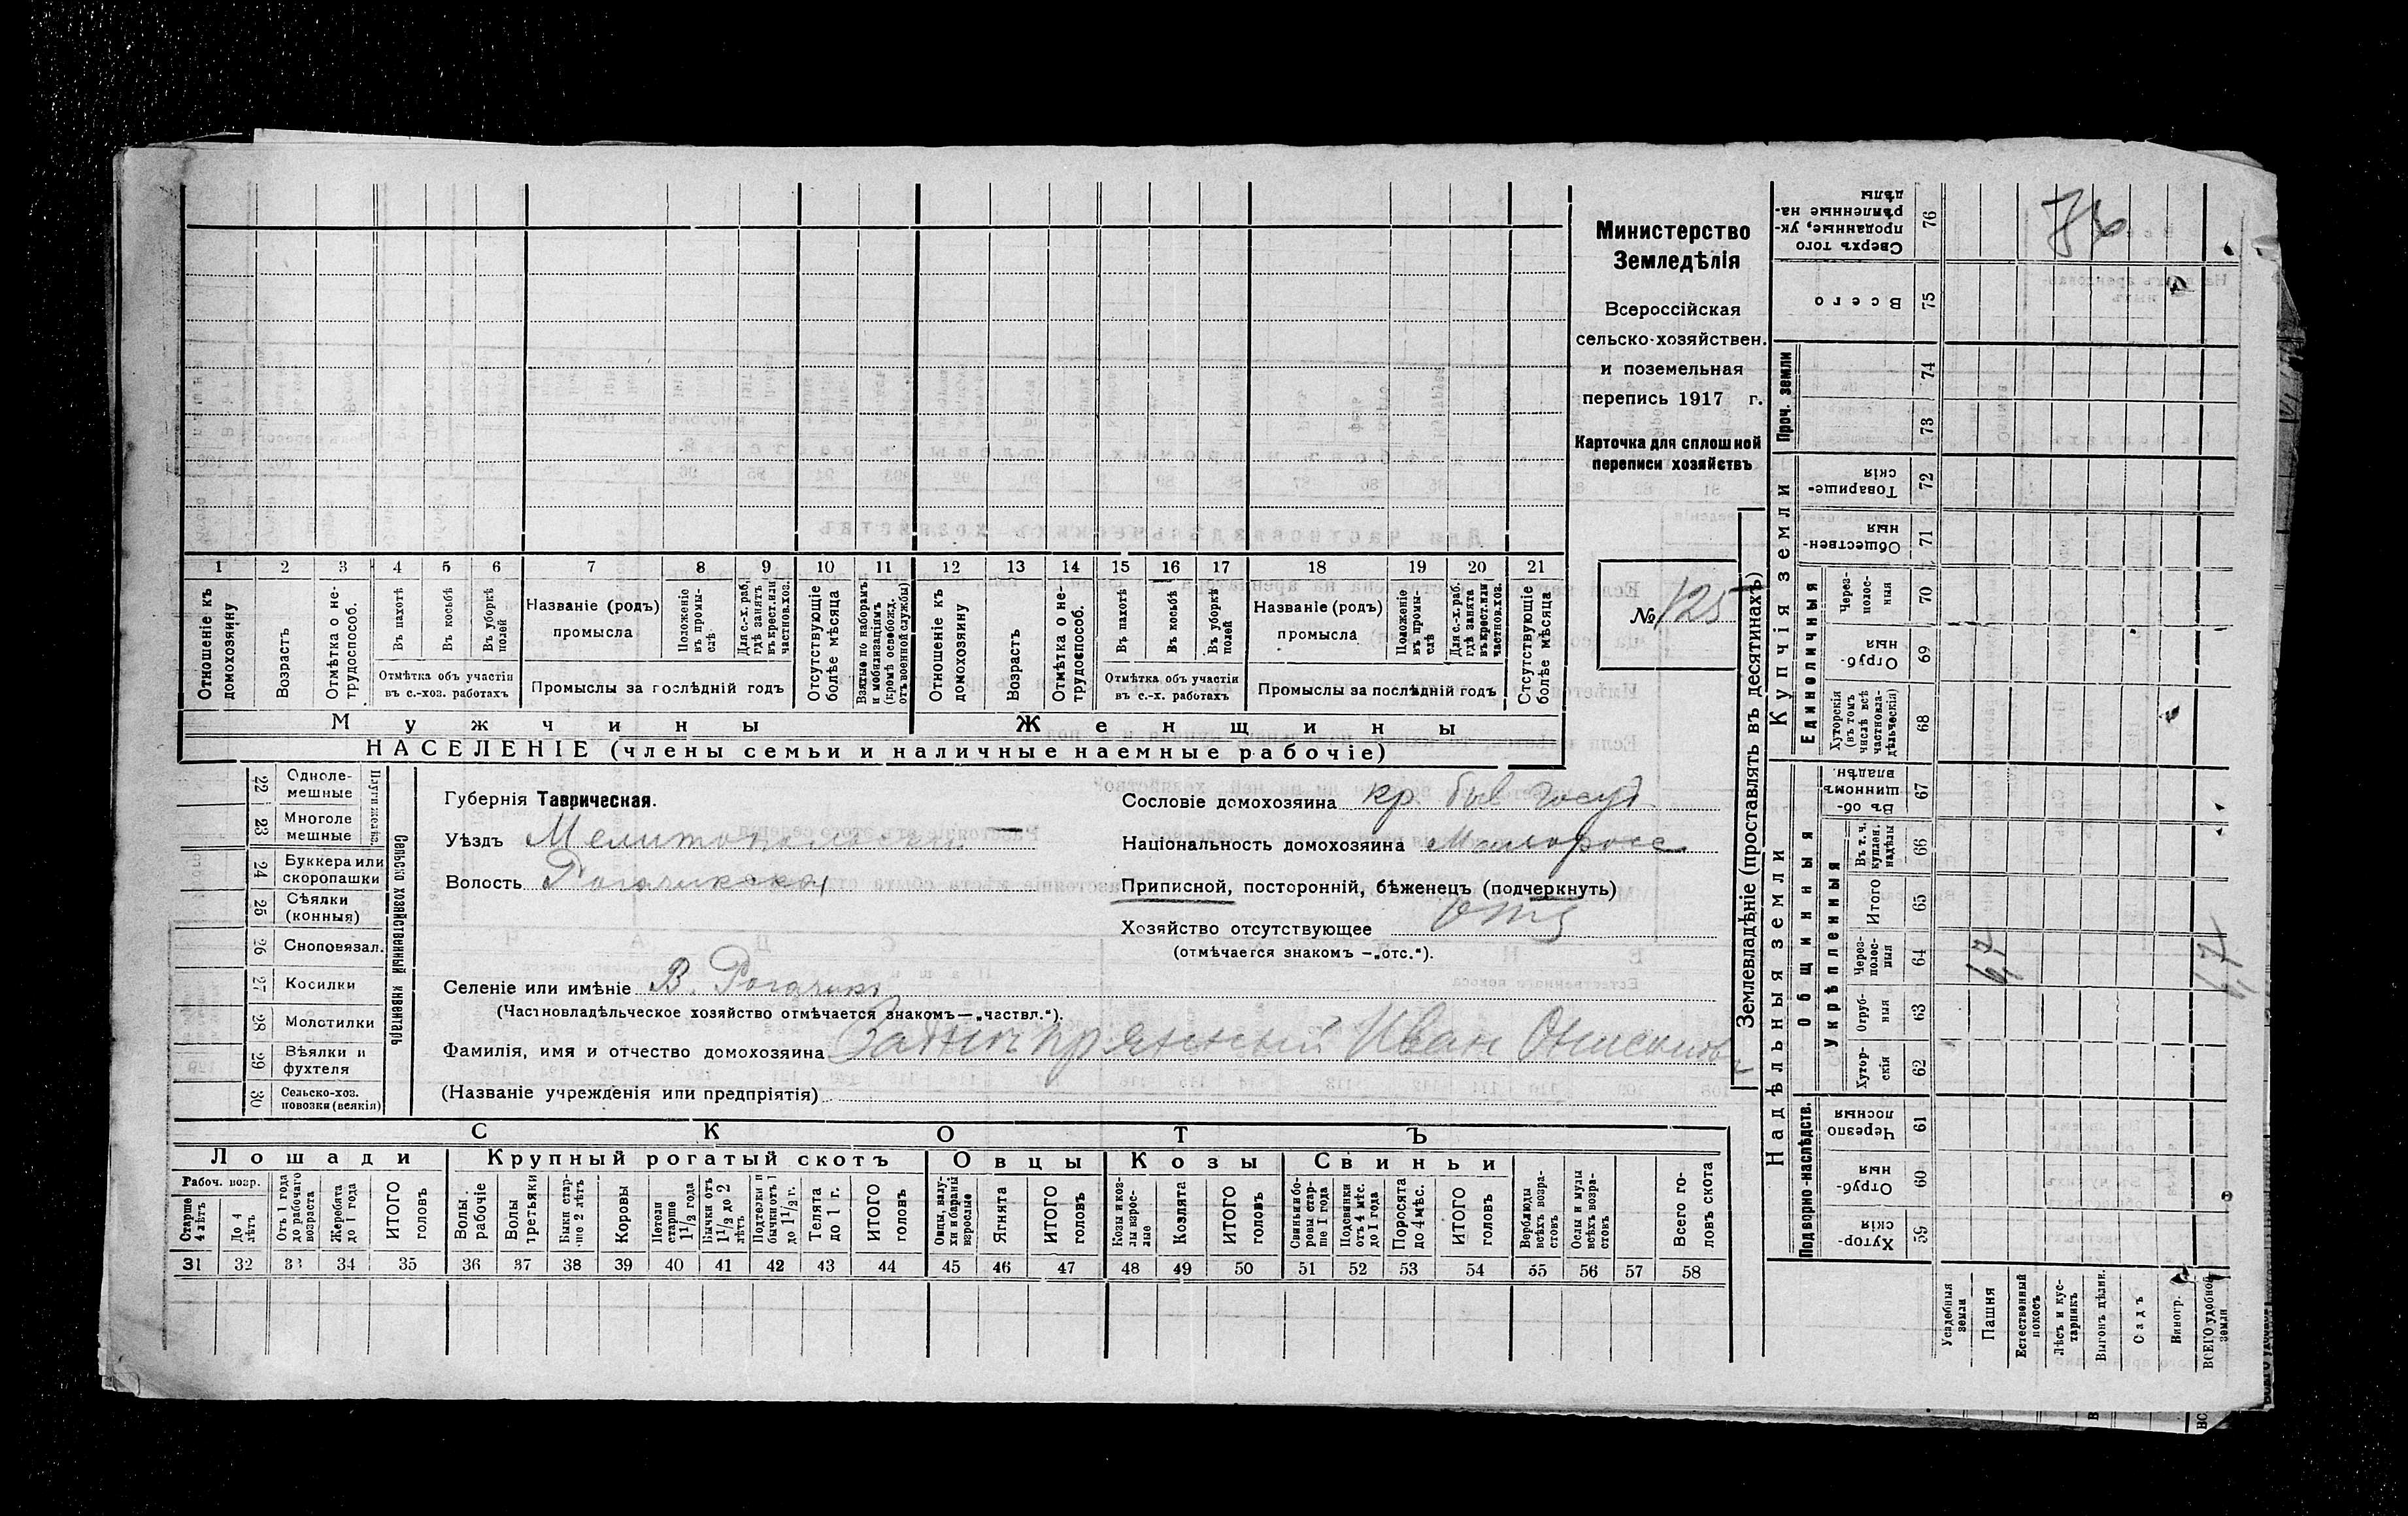 Министерство
Земледѣлія
Всероссійская
сельско-хозяйствен.
и поземельная
перепись 1917 г.
Карточка для сплошной
переписи хозяйствъ
№ 125
1 2 3 4 5 6 7 8 9 10 11 12 13 14 15 16 17 18 19 20 21
Отношеніе къ домохозяину
Возрастъ
Отмѣтка о не-трудоспособ.
Въ пахотѣ
Въ косьбѣ
Въ уборкѣ полей
Отмѣтка объ участіи
въ с.-хоз. работахъ
Названіе (родъ)
промысла
Положеніе въ промы-слѣ
Для с.-х. раб. гдѣ занятъ въ крест. или частнов. хоз.
Промыслы за послѣдній годъ
Отсутствующіе болѣе мѣсяца
Взятые по наборамъ и мобилизаціямъ (кромѣ освобожд. отъ военной службы)
Отношеніе къ домохозяину
Возрастъ
Отмѣтка о не-трудоспособ.
Въ пахотѣ
Въ косьбѣ
Въ уборкѣ полей
Отмѣтка объ участіи
въ с.-х. работахъ
Названіе (родъ)
промысла
Положеніе въ промы-слѣ
Для с.-х. раб. гдѣ занята въ крест. или частнов. хоз.
Промыслы за послѣдній годъ
Отсутствующіе болѣе мѣсяца
Мужчины
Женщины
НАСЕЛЕНІЕ (члены семьи и наличные наемные рабочіе)
Сельско хозяйственный инвентарь
22 Одноле-мешные
23 Многоле мешные
24 Буккера или скоропашки
25 Сѣялки (конныя)
26 Сноповязал.
27 Косилки
28 Молотилки
29 Вѣялки и фухтеля
30 Сельско-хоз. повозки (всякія)
Губернія Таврическая.
Уѣздъ Мелитопольский
Волость Рогачикская
Сословіе домохозяина кр. быв госуд
Національность домохозяина Малоросс
Приписной, посторонній, бѣженецъ (подчеркнуть)
Хозяйство отсутствующее отс
(отмѣчается знакомъ —„отс.“).
Селеніе или имѣніе В. Рогачик
(Частновладѣльческое хозяйство отмѣчается знакомъ—„частвл.“).
Фамилія, имя и отчество домохозяина Иван
(Названіе учрежденія или предпріятія)
СКОТЪ
Лошади
Крупный рогатый скотъ
Овцы
Козы
Свиньи
Рабоч. возр.
Старше 4 лѣтъ
До 4 лѣтъ
Отъ 1 года до рабочаго возраста
Жеребята до 1 года
ИТОГО головъ
Волы рабочіе
Волы третьяки
Быки стар-ше 2 лѣтъ
Коровы
Нетели старше 1½ года
Бычки отъ 1½ до 2 лѣтъ
Подтелки и бычки отъ 1 до 1½ г.
Телята до 1 г.
ИТОГО головъ
Овцы, валу-хи и бараны взрослые
Ягнята
ИТОГО головъ
Козы и коз-лы взрос-лые
Козлята
ИТОГО головъ
Свиньи и бо-ровы стар-ше 1 года
Подсвинки отъ 4 мѣс. до 1 года
Поросята до 4 мѣс.
ИТОГО головъ
Верблюды всѣхъ возра-стовъ
Ослы и мулы всѣхъ возра-стовъ
Всего го-ловъ скота
31 32 33 34 35 36 37 38 39 40 41 42 43 44 45 46 47 48 49 50 51 52 53 54 55 56 57 58
Землевладѣніе (проставлять въ десятинахъ)
Надѣльныя земли
Купчія земли
Проч. земли
Подворно-наслѣдств.
Общинныя
Укрѣпленныя
Единоличныя
Сверхъ того проданные, ук-рѣпленные на-дѣлы 76
Всего 75
74
73
Товарище-скія 72
Обществен-ныя 71
Через-полос-ныя 70
Отруб-ныя 69
Хуторскія (въ томъ числѣ всѣ частновла-дѣльческія) 68
Въ об-щинномъ владѣн. 67
Въ т. ч. куплен. надѣлы 66
Итого 65
Через-полос-ныя 64
Отруб-ныя 63
Хутор-скія 62
Черезпо лосныя 61
Отруб-ныя 60
Хутор-скія 59
Усадебныя земли
Пашня
Естественный покосъ
Лѣсъ и кус-тарникъ
Выгонъ цѣлин.
Садъ
Виногр.
ВСЕГО удобной земли